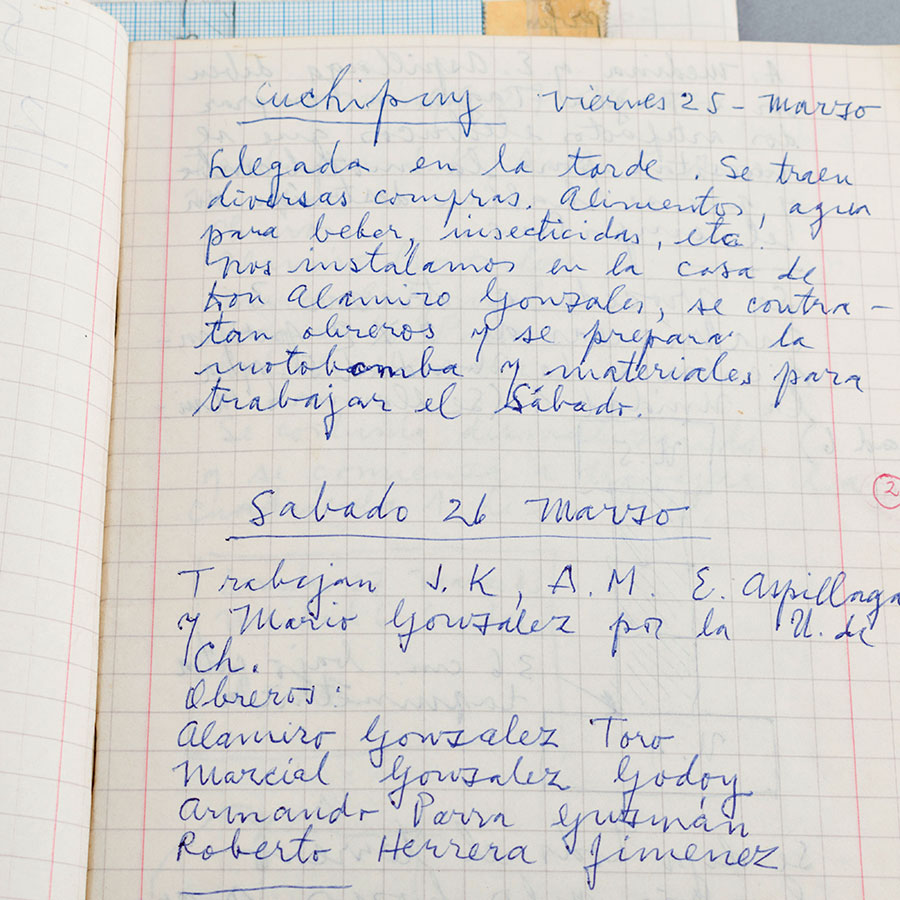 Cuchipuy viernes 25 - Marzo
Llegada en la tarde. Se traen
diversas compras. Alimentos, agua
para beber, insecticidas, etc.
Nos instalamos en la casa de
Don Alamiro Gonzales, se contra-
tan obreros y se prepara la
motobomba y materiales para
trabajar el Sábado.
Sabado 26 Marzo
2
Trabajan J.K, A.M. E. Aspillaga
y Mario Gonzalez por la U. de
Ch.
Obreros:
Alamiro Gonzalez Toro
Marcial Gonzalez Godoy
Armando Parra Guzmán
Roberto Herrera Jimenez